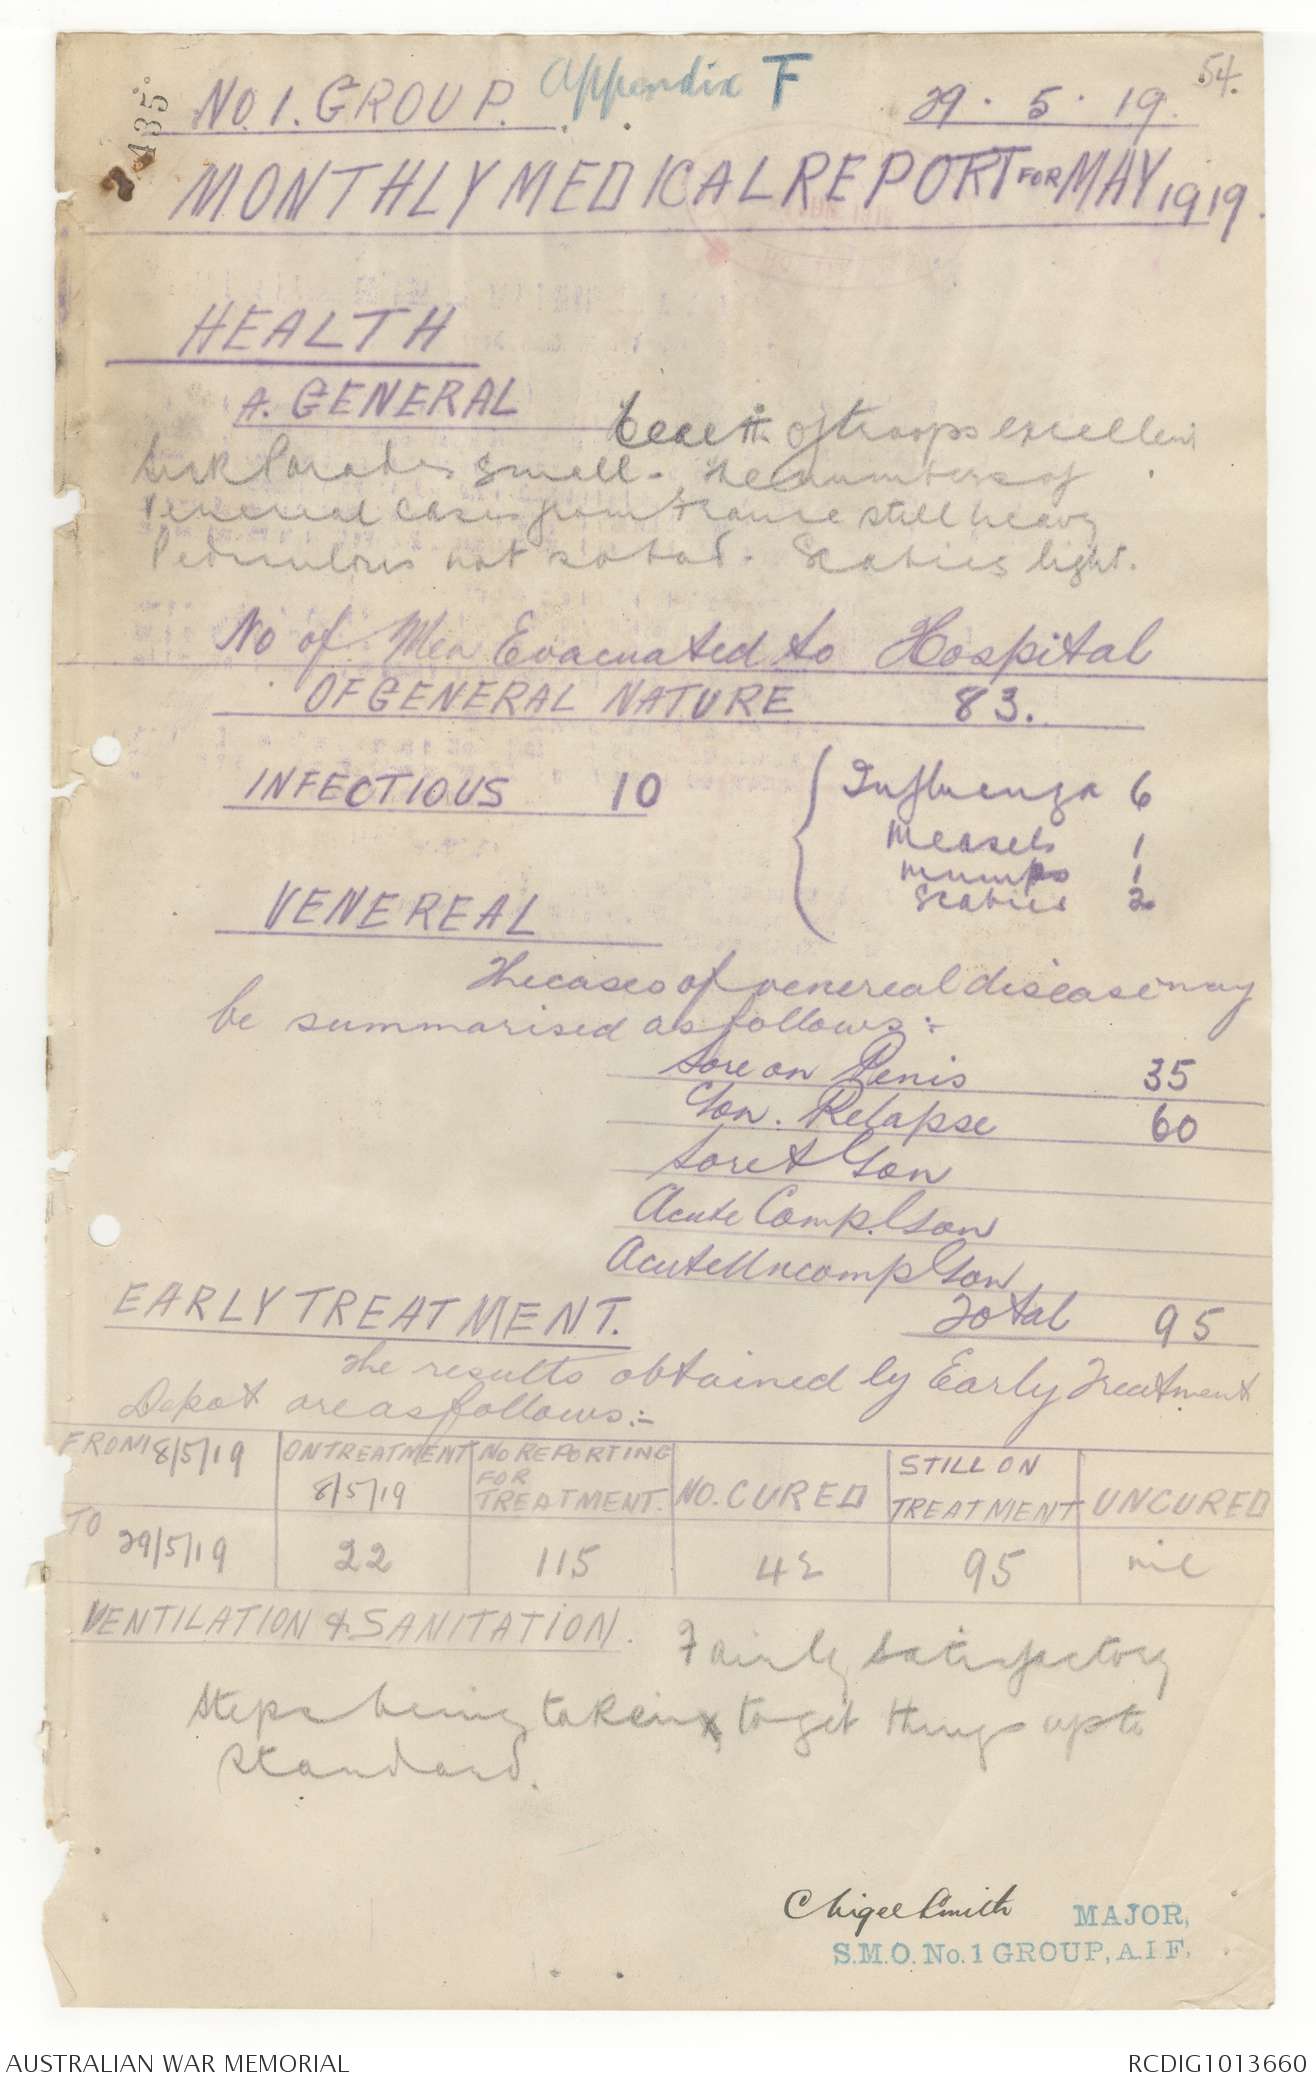 54.
435
No. 1. GROUP. Appendix F 29. 5. 19.
MONTHLY MEDICAL REPORT FOR MAY 1919.
HEALTH
A. GENERAL
Health of troops excellent
Sick Parades small. The numbers of
Venereal cases from France still heavy
Pediculosis not so bad. Scabies light.
No of Men Evacuated to Hospital
OF GENERAL NATURE 83.
INFECTIOUS 10
Influenza 6
Measels 1
Mumps 1
Scabies 2
VENEREAL
The cases of venereal disease may
be summarised as follows:-
Sore on Penis 35
Gon. Relapse 60
Sore & Gon
Acute Comp. Gon
Acute Uncomp Gon
Total 95
EARLY TREATMENT.
The results obtained by Early Treatment
Depot are as follows:-
FROM 8/5/19 ON TREATMENT 8/5/19 NO REPORTING FOR TREATMENT. NO. CURED STILL ON TREATMENT UNCURED
TO 29/5/19 22 115 42 95 nil
VENTILATION & SANITATION.
Fairly satisfactory
Steps being taken to get things up to
standard.
Smith MAJOR,
S.M.O. No. 1 GROUP, A.I F.
AUSTRALIAN WAR MEMORIAL RCDIG1013660